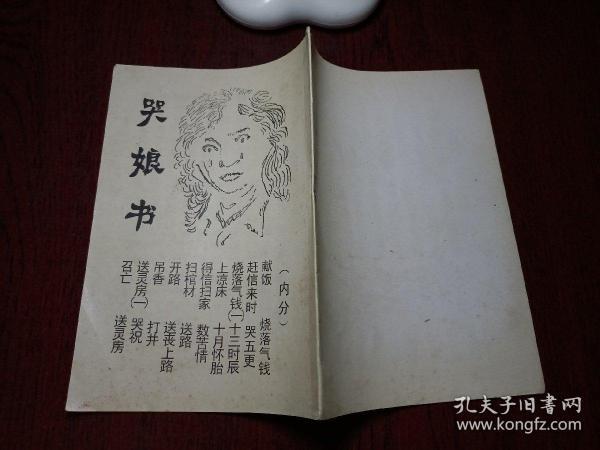 哭娘书
(内分)
献饭 烧落气钱
赶信来时 哭五更
烧落气钱(一) 十三时辰
上凉床 十月怀胎
得信扫家 数苦情
扫棺材 送路
开路 送丧上路
吊香 打井
送灵房(一) 哭祝
召亡 送灵房
孔夫子旧書网
www.kongfz.com